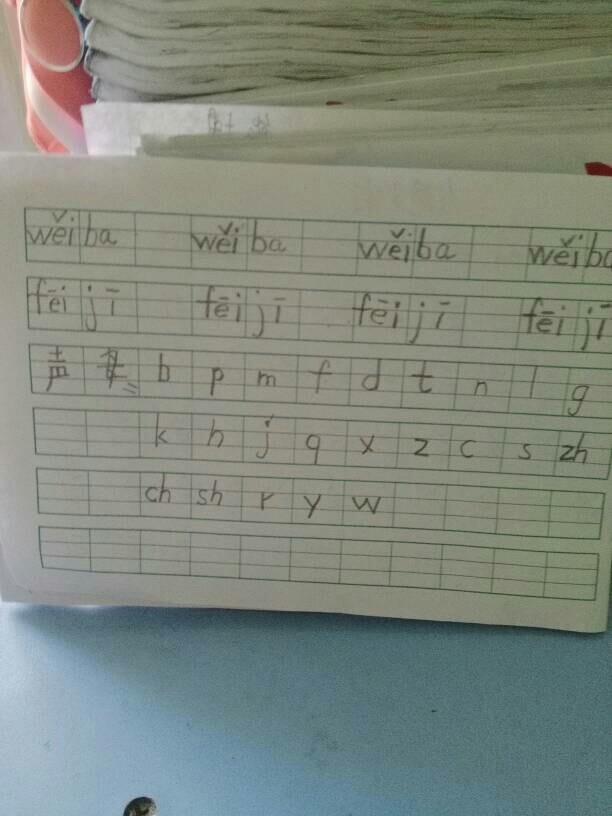 wěi ba wěi ba wěi ba wěi ba
fēi jī fēi jī fēi jī fēi jī
声 b p m f d t n l g
k h j q x z c s zh
ch sh r y w